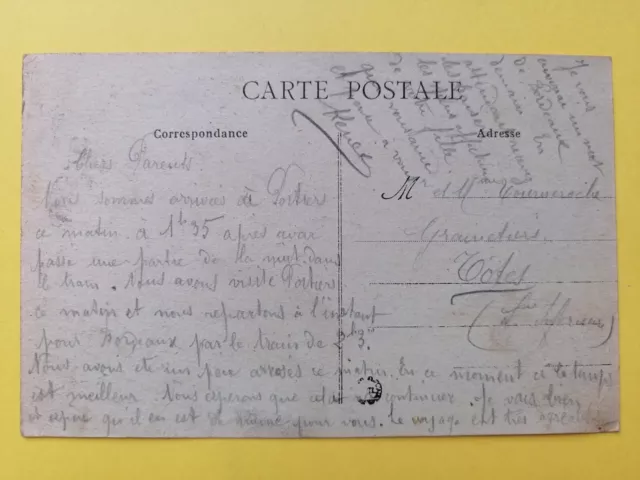 CARTE POSTALE
Correspondance
Adresse
Chers Parents
Nous sommes arrivés à Poitiers
ce matin à 1h35 après avoir
passé une partie de la nuit dans
le train. Nous avons visité Poitiers
ce matin et nous repartons à l'instant
pour Bordeaux par le train de
Nous avons été un peu arrosés ce matin. En ce moment ci le temps
est meilleur. Nous espérons que cela va continuer. Je vais bien
et espère qu'il en est de même pour vous. Le voyage est très agréable
M et M Tourneroche
Grainetiers
Tôtes
(Sne Inférieure)
Je vous
enverrai un mot
de Bordeaux
demain. En
attendant recevez
les baisers
les plus affectueux
de votre fille
qui
et